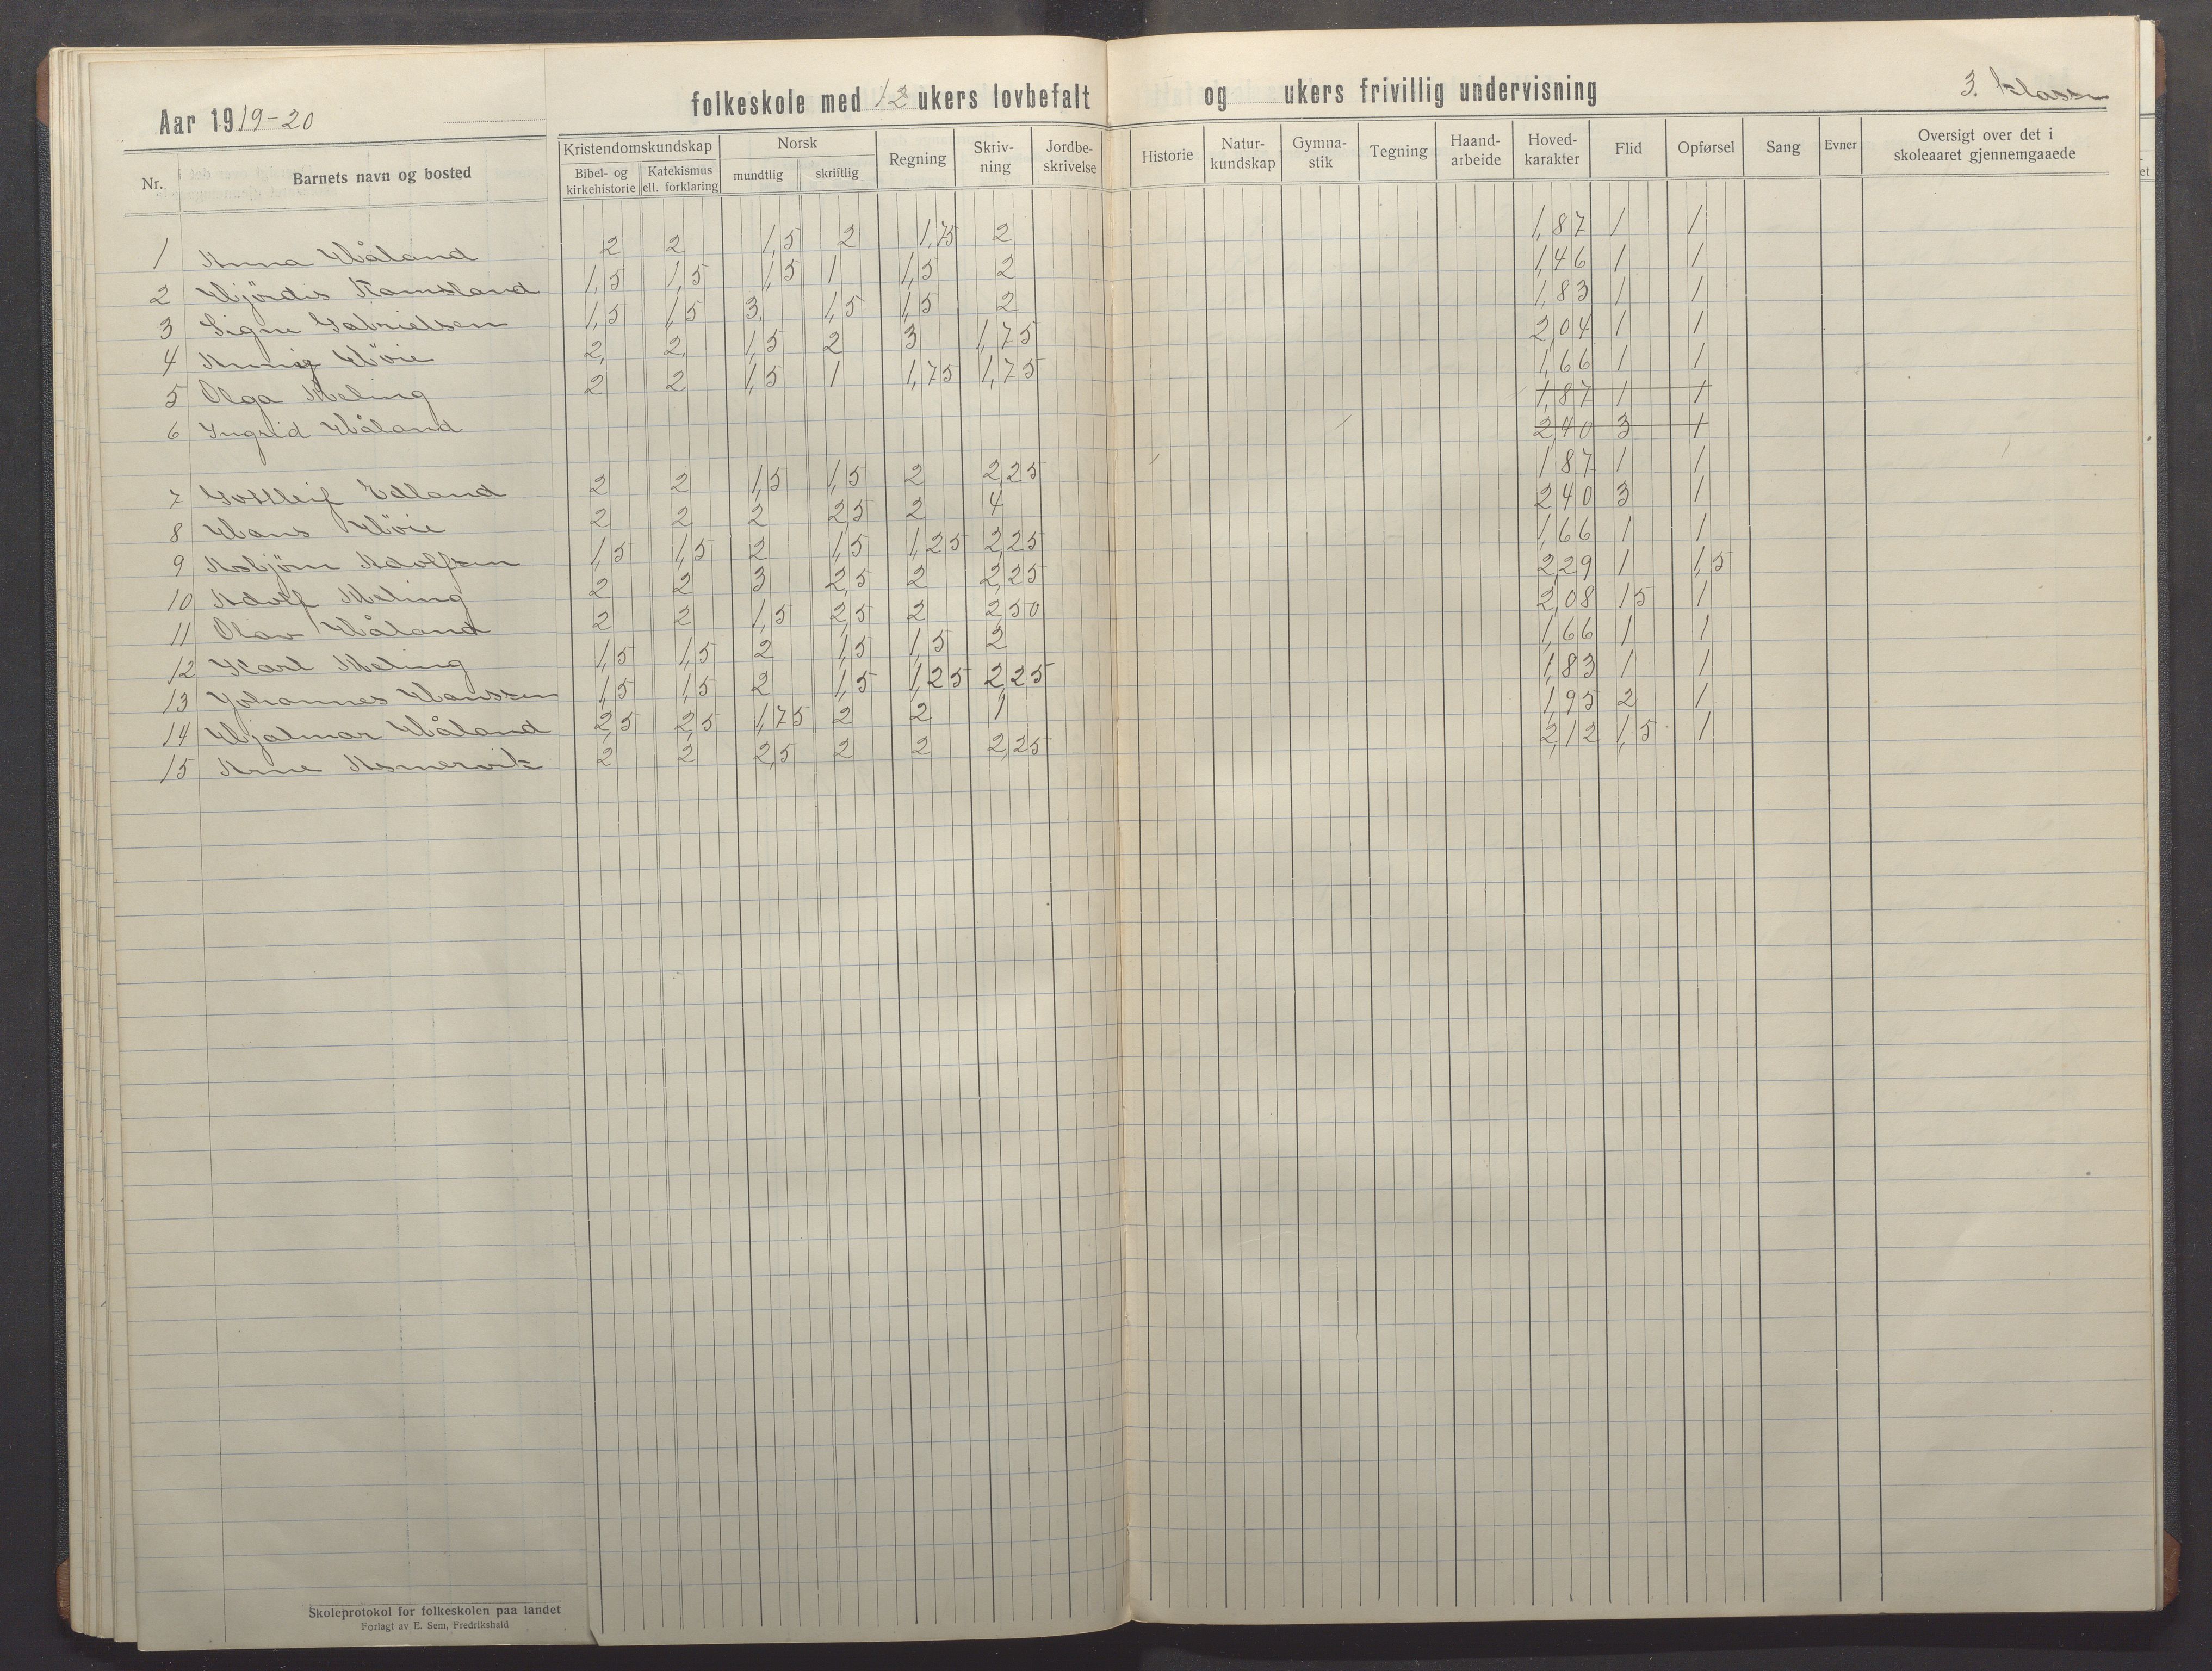 Aar 1919-20
folkeskole med 12 ukers lovbefalt og ukers frivillig undervisning
3. klasse
Nr. Barnets navn og bosted Kristendomskundskap Bibel- og kirkehistorie Katekismus ell. forklaring Norsk mundtlig skriftlig Regning Skriv-ning Jordbe-skrivelse Historie Natur-kundskap Gymna-stik Tegning Haand-arbeide Hoved-karakter Flid Opførsel Sang Evner Oversigt over det i skoleaaret gjennemgaaede
1 Anna Håland 2 2 1,5 2 1,75 2 1,87 1 1
2 Hjördis Ramsland 1,5 1,5 1,5 1 1,5 2 1,46 1 1
3 Signe Gabrielsen 1,5 1,5 3 1,5 1,5 2 1,83 1 1
4 Höie 2 2 1,5 2 3 1,75 2,04 1 1
5 Olga Meling 2 2 1,5 1 1,75 1,75 1,66 1 1
6 Ingrid Håland 1,87 1 1
2,40 3 1
7 Gottleif Edland 2 2 1,5 1,5 2 2,25 1,87 1 1
8 Hans Höie 2 2 2 2,5 2 4 2,40 3 1
9 Asbjörn Adolfsen 1,5 1,5 2 1,5 1,25 2,25 1,66 1 1
10 Adolf Meling 2 2 3 2,5 2 2,25 2,29 1 1,5
11 Olav Håland 2 2 1,5 2,5 2 2,50 2,08 1,5 1
12 Karl Meling 1,5 1,5 2 1,5 1,5 2 1,66 1 1
13 Johannes Hanssen 1,5 1,5 2 1,5 1,25 2,25 1,83 1 1
14 Hjalmar Håland 2,5 2,5 1,75 2 2 1 1,95 2 1
15 Arne Asmervik 2 2 2,5 2 2 2,25 2,12 1,5 1
Skoleprotokol for folkeskolen paa landet
Forlagt av E. Sem, Fredrikshald